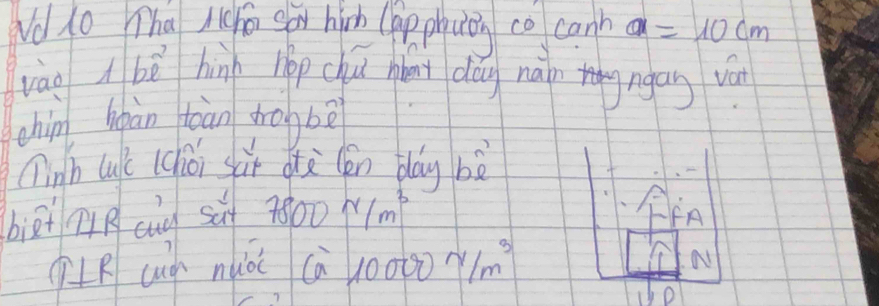 Vd 10 Thả 1 khối sắt hình lập phương có cạnh a = 10 cm
vào 1 bể hình hộp chữ nhật đáy nằm ngang vật
chìm hoàn toàn trong bể
Tính lực khối sắt đè lên đáy bể
biết TLR của sắt 7800 N/m³
TLR của nước là 10000 N/m³
FA
N
P